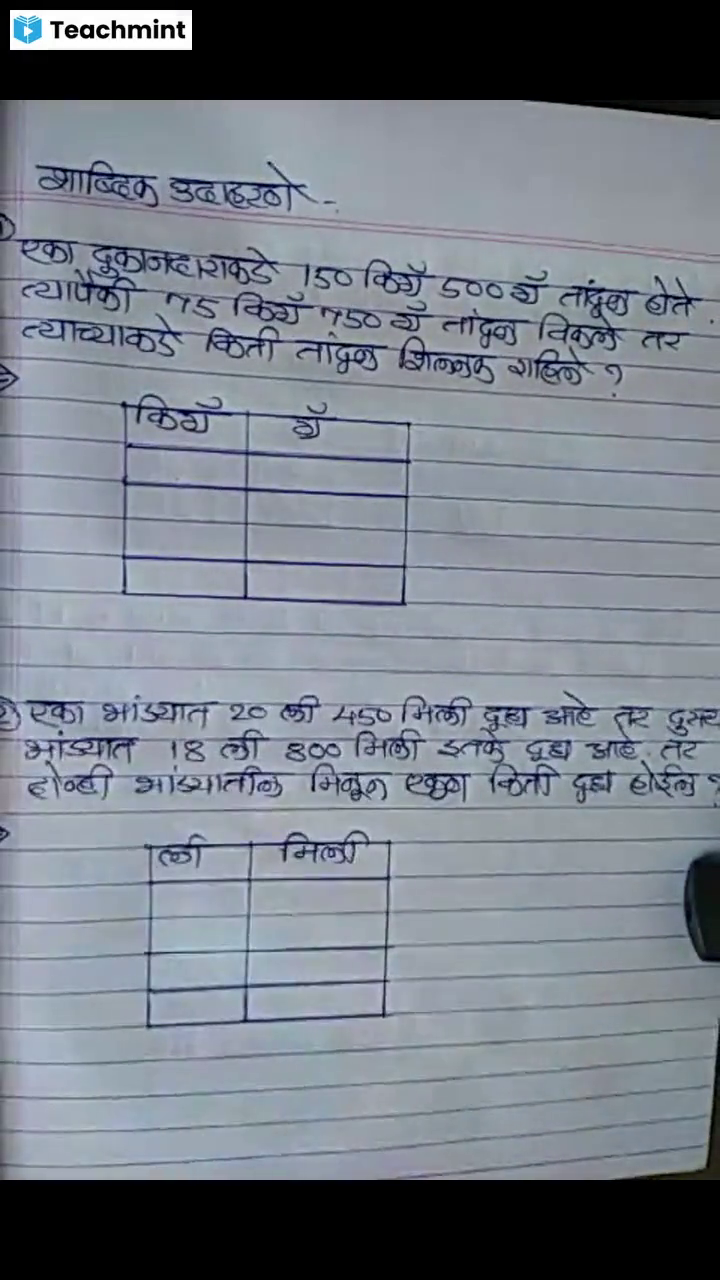 Teachmint
शाब्दिक उदाहरणे -
1) एका दुकानदाराकडे 150 किग्रॅ 500 ग्रॅ तांदूळ होते.
त्यापैकी 75 किग्रॅ 750 ग्रॅ तांदूळ विकले तर
त्याच्याकडे किती तांदूळ शिल्लक राहिले ?
⇒
किग्रॅ ग्रॅ
2) एका भांड्यात 20 ली 450 मिली दूध आहे तर
भांड्यात 18 ली 800 मिली इतके दूध आहे. तर
दोन्ही भांड्यातील मिळून एकूण किती दूध होईल ?
ली मिली